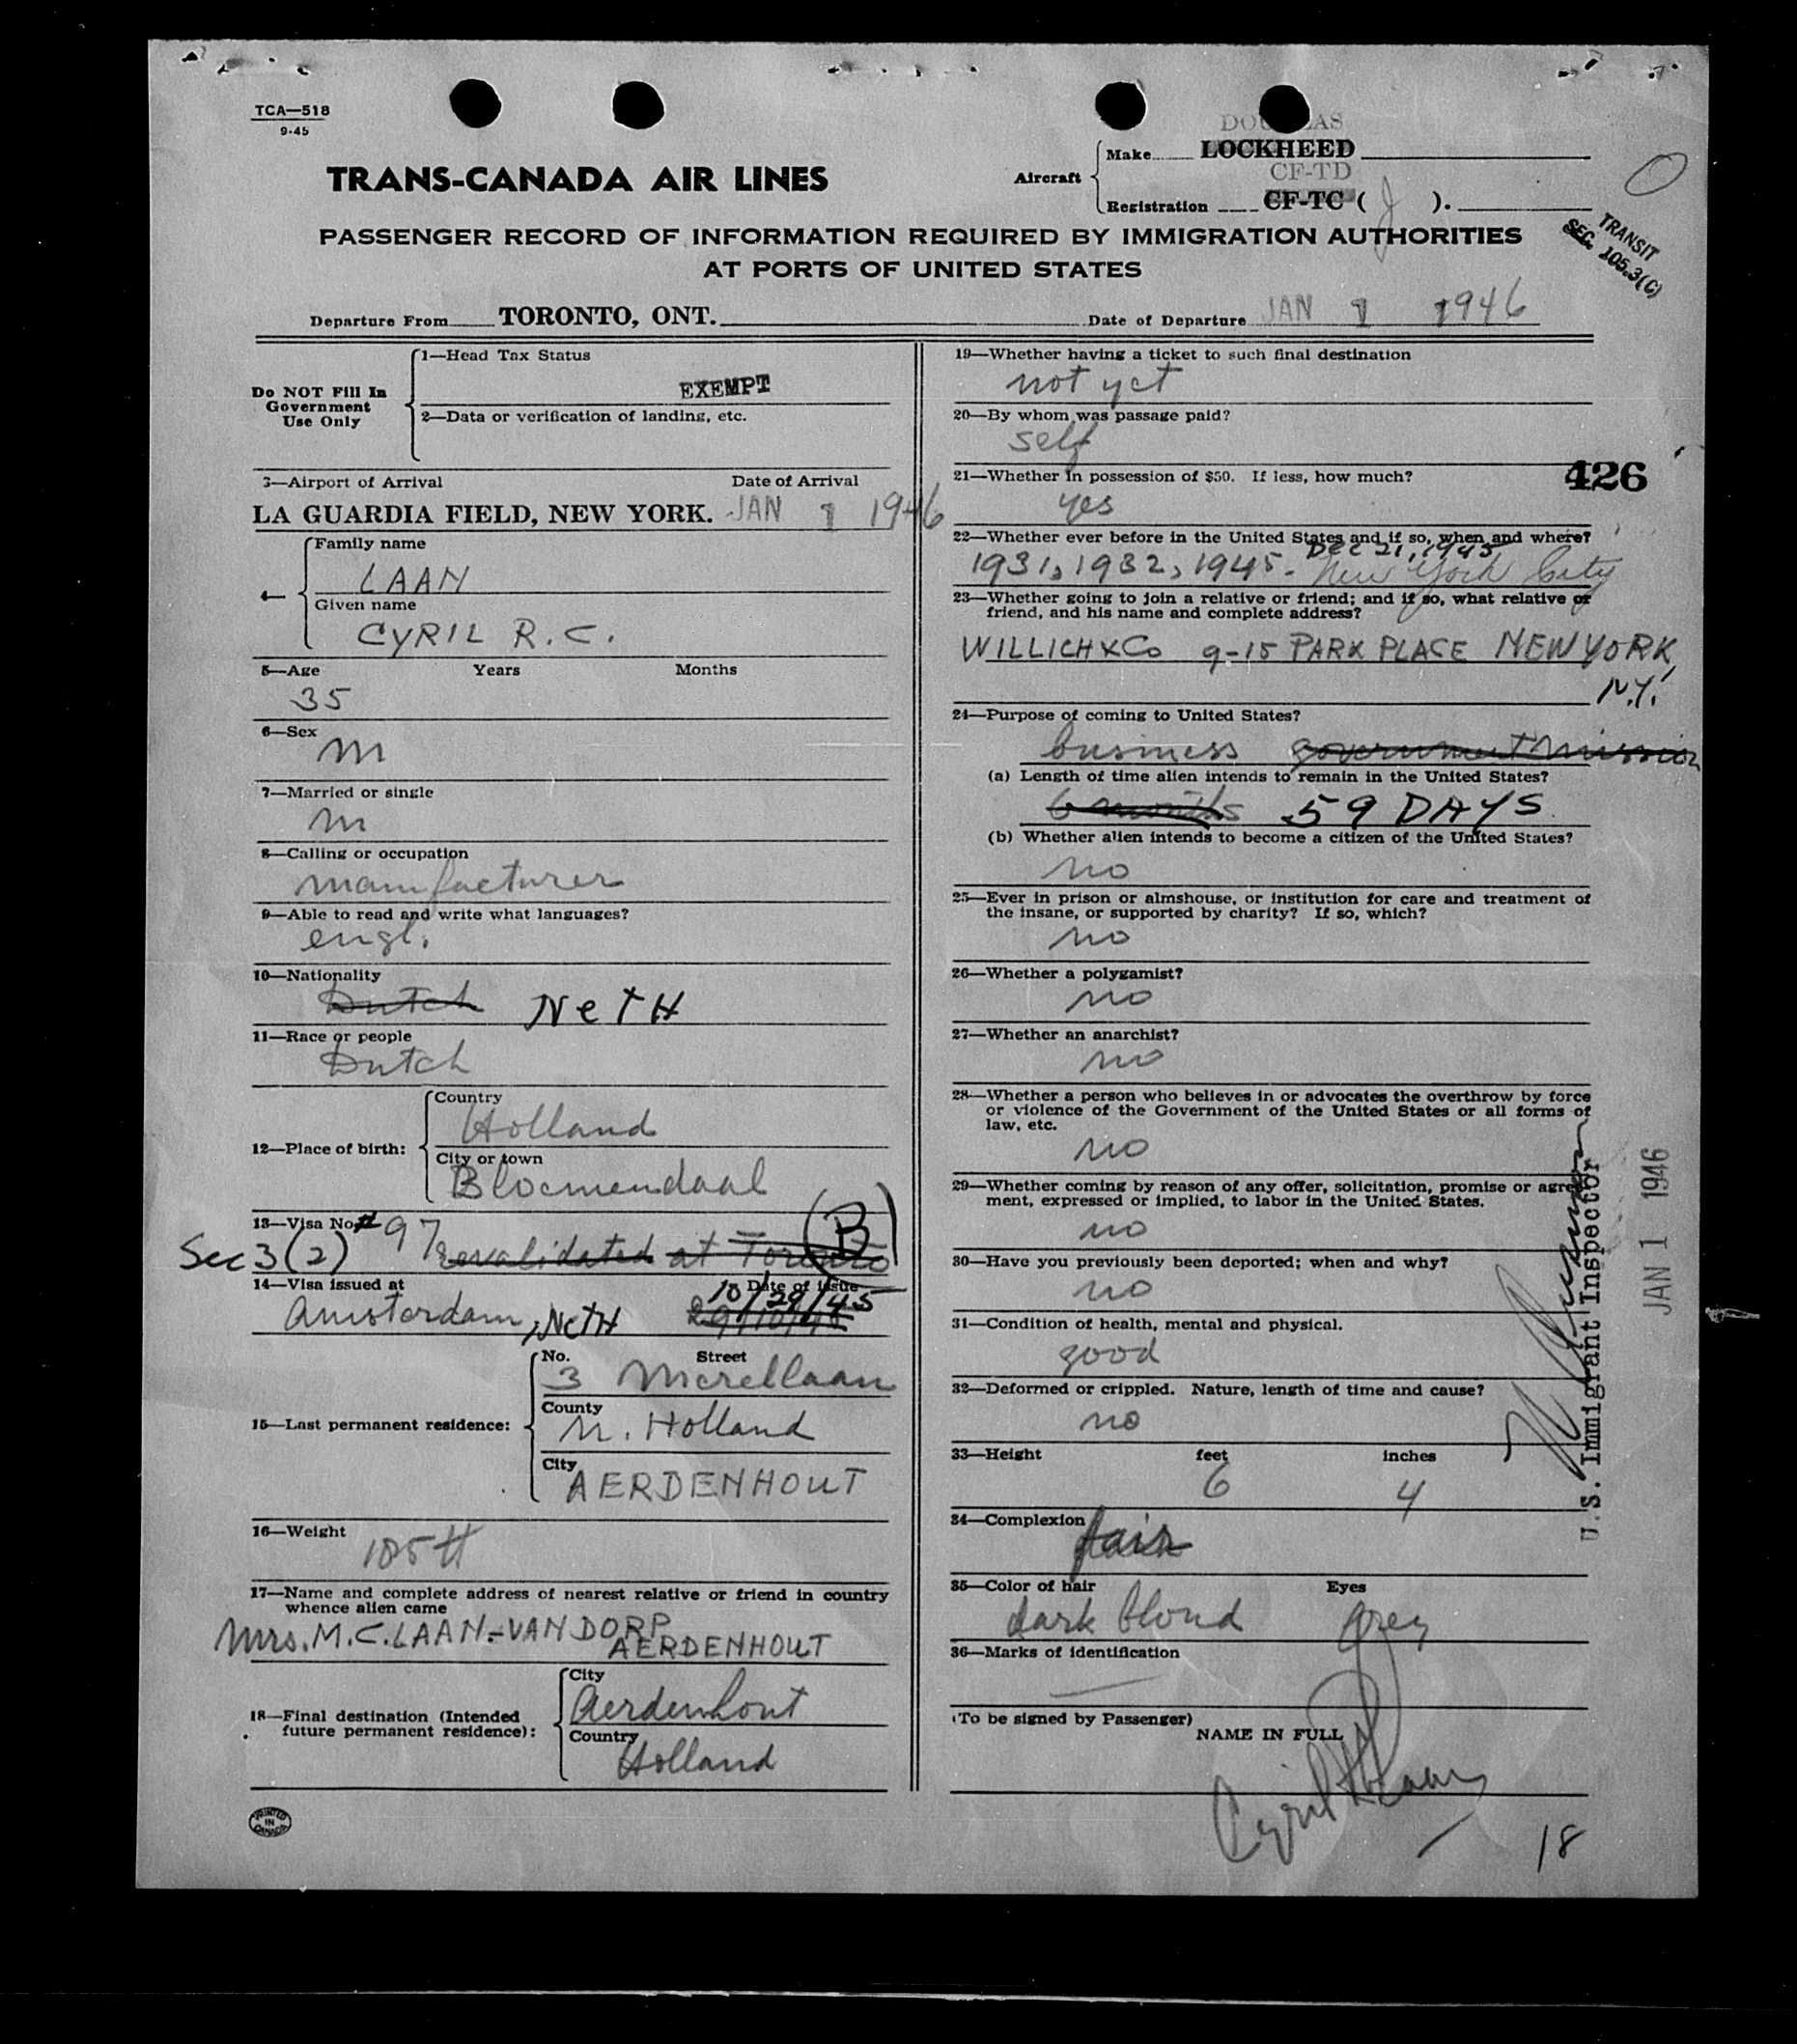 TCA—518
9-45
DOUGLAS
Aircraft
Make LOCKHEED
CF-TD
Registration CF-TC ( J ).
TRANS-CANADA AIR LINES
PASSENGER RECORD OF INFORMATION REQUIRED BY IMMIGRATION AUTHORITIES
AT PORTS OF UNITED STATES
TRANSIT
SEC. 105.3(C)
Departure From TORONTO, ONT. Date of Departure JAN 1 1946
Do NOT Fill In
Government
Use Only
1—Head Tax Status
EXEMPT
2—Data or verification of landing, etc.
3—Airport of Arrival Date of Arrival
LA GUARDIA FIELD, NEW YORK. JAN 1 1946
4—
Family name
LAAN
Given name
CYRIL R. C.
5—Age Years Months
35
6—Sex
M
7—Married or single
M
8—Calling or occupation
manufacturer
9—Able to read and write what languages?
engl.
10—Nationality
Dutch NetH
11—Race or people
Dutch
12—Place of birth:
Country
Holland
City or town
Bloemendaal
13—Visa No. # 97 revalidated at Toronto (B)
Sec 3 (2)
14—Visa issued at Date of issue
10/29/45
Amsterdam, NetH 29/10/45
15—Last permanent residence:
No. Street
3 Merellaan
County
N. Holland
City
AERDENHOUT
16—Weight
185 #
17—Name and complete address of nearest relative or friend in country
whence alien came
Mrs. M. C. LAAN-VAN DORP
AERDENHOUT
18—Final destination (Intended
future permanent residence):
City
Aerdenhout
Country
Holland
PRINTED
IN
CANADA
19—Whether having a ticket to such final destination
not yet
20—By whom was passage paid?
self
21—Whether in possession of $50. If less, how much?
426
yes
22—Whether ever before in the United States and if so, when and where?
Dec 21, 1945
1931, 1932, 1945. New York City
23—Whether going to join a relative or friend; and if so, what relative or
friend, and his name and complete address?
WILLICH & Co 9-15 PARK PLACE NEW YORK,
N.Y.
24—Purpose of coming to United States?
business government mission
(a) Length of time alien intends to remain in the United States?
6 months 59 DAYS
(b) Whether alien intends to become a citizen of the United States?
no
25—Ever in prison or almshouse, or institution for care and treatment of
the insane, or supported by charity? If so, which?
no
26—Whether a polygamist?
no
27—Whether an anarchist?
no
28—Whether a person who believes in or advocates the overthrow by force
or violence of the Government of the United States or all forms of
law, etc.
no
29—Whether coming by reason of any offer, solicitation, promise or agree-
ment, expressed or implied, to labor in the United States.
no
30—Have you previously been deported; when and why?
no
31—Condition of health, mental and physical.
good
32—Deformed or crippled. Nature, length of time and cause?
no
33—Height feet inches
6 4
34—Complexion
fair
35—Color of hair Eyes
dark blond grey
36—Marks of identification
(To be signed by Passenger)
NAME IN FULL
Cyril Laan
18
U.S. Immigrant Inspector
JAN 1 1946